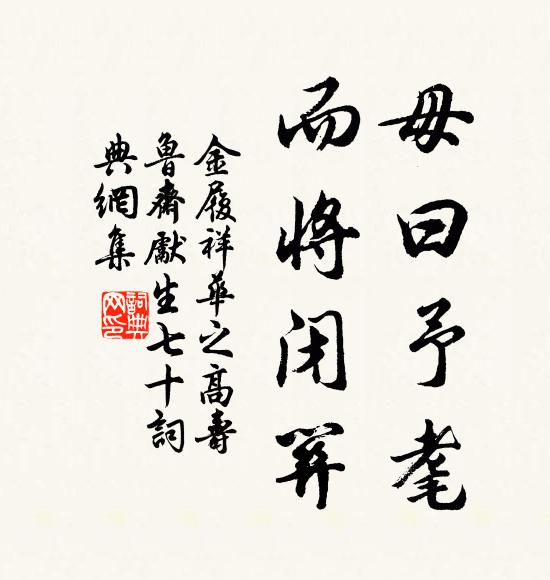 毋曰予耄
而將闭關
金履祥華之高壽
魯齋獻生七十詞
典網集
詞典
网印